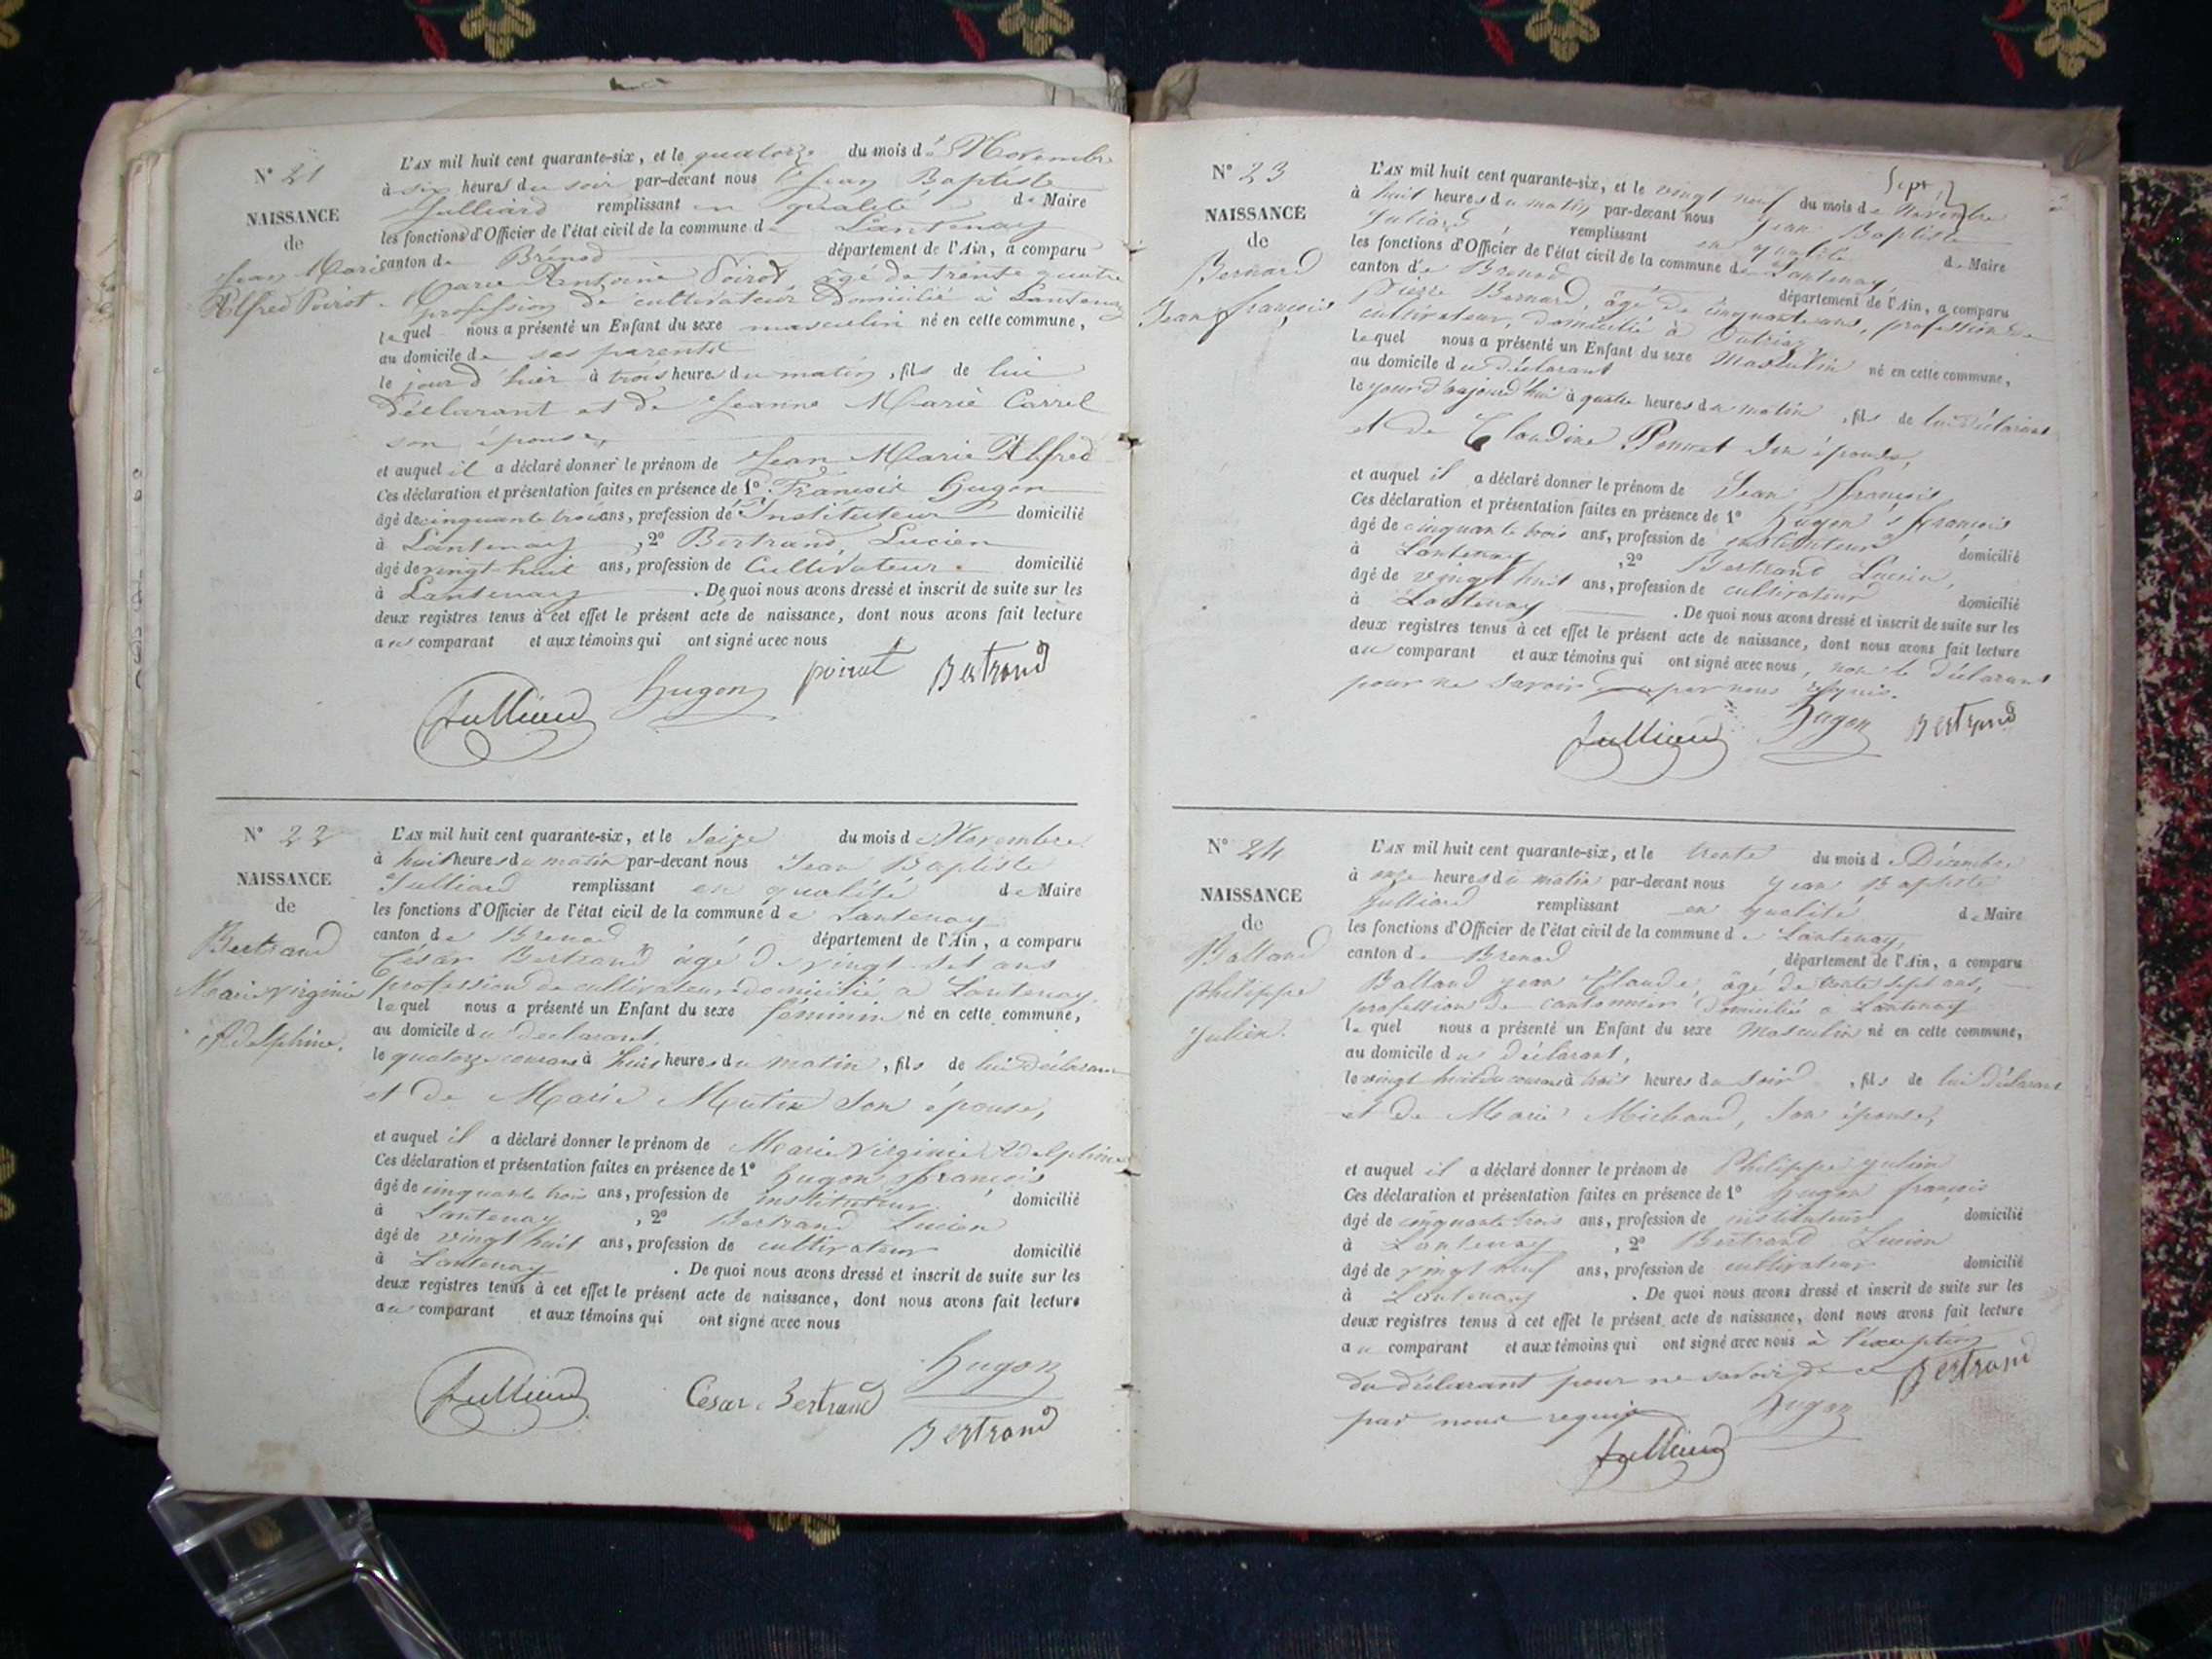 N° 21
NAISSANCE
de
Jean Marie
Alfred Poirot
L'AN mil huit cent quarante-six, et le quatorze du mois de Novembre
à six heures du soir par-devant nous Jean Baptiste
Julliard remplissant en qualité de Maire
les fonctions d'Officier de l'état civil de la commune de Lantenay
canton de Brénod département de l'Ain, a comparu
Marie Antoine Poirot, âgé de trente quatre
profession de cultivateur domicilié à Lantenay
lequel nous a présenté un Enfant du sexe masculin né en cette commune,
au domicile de ses parents
le jour d'hier à trois heures du matin, fils de lui
déclarant et de Jeanne Marie Carrel
son épouse,
et auquel il a déclaré donner le prénom de Jean Marie Alfred
Ces déclaration et présentation faites en présence de 1° François Hugon
âgé de cinquante trois ans, profession de Instituteur domicilié
à Lantenay, 2° Bertrand, Lucien
âgé de vingt-huit ans, profession de Cultivateur. domicilié
à Lantenay. De quoi nous avons dressé et inscrit de suite sur les
deux registres tenus à cet effet le présent acte de naissance, dont nous avons fait lecture
au comparant et aux témoins qui ont signé avec nous
Julliard Hugon poirot Bertrand
N° 22
NAISSANCE
de
Bertrand
Marie Virginie
Adelphine.
L'AN mil huit cent quarante-six, et le Seize du mois de Novembre
à huit heures du matin par-devant nous Jean Baptiste
Julliard remplissant en qualité de Maire
les fonctions d'Officier de l'état civil de la commune de Lantenay
canton de Brenod département de l'Ain, a comparu
César Bertrand âgé de vingt sept ans
profession de cultivateur domicilié a Lantenay,
lequel nous a présenté un Enfant du sexe féminin né en cette commune,
au domicile du declarant,
le quatorze courant à huit heures du matin, fils de lui déclarant
et de Marie Mutin son épouse,
et auquel il a déclaré donner le prénom de Marie Virginie Adelphine
Ces déclaration et présentation faites en présence de 1° hugon françois
âgé de cinquante trois ans, profession de instituteur domicilié
à Lantenay, 2° Bertrand Lucien
âgé de vingt huit ans, profession de cultivateur domicilié
à Lantenay. De quoi nous avons dressé et inscrit de suite sur les
deux registres tenus à cet effet le présent acte de naissance, dont nous avons fait lecture
au comparant et aux témoins qui ont signé avec nous
Julliard César Bertrand hugon
Bertrand
N° 23
NAISSANCE
de
Bernard
Jean françois
Sept
L'AN mil huit cent quarante-six, et le vingt neuf du mois de Novembre
à huit heures du matin par-devant nous Jean Baptiste
Juliard remplissant en qualité de Maire
les fonctions d'Officier de l'état civil de la commune de Lantenay,
canton de Brenod département de l'Ain, a comparu
Pierre Bernard, âgé de cinquante ans, profession de
cultivateur, domicilié à Outriaz
lequel nous a présenté un Enfant du sexe Masculin né en cette commune,
au domicile du déclarant
le jour d'aujourd'hui à quatre heures du matin, fils de lui déclarant
et de Claudine Poncet son épouse,
et auquel il a déclaré donner le prénom de Jean françois,
Ces déclaration et présentation faites en présence de 1° hugon françois
âgé de cinquante trois ans, profession de instituteur domicilié
à Lantenay, 2° Bertrand Lucien,
âgé de vingt huit ans, profession de cultivateur domicilié
à Lantenay. De quoi nous avons dressé et inscrit de suite sur les
deux registres tenus à cet effet le présent acte de naissance, dont nous avons fait lecture
au comparant et aux témoins qui ont signé avec nous, non le déclarant
pour ne savoir par nous requis.
Julliard hugon Bertrand
N° 24
NAISSANCE
de
Balland
philippe
Julien.
L'AN mil huit cent quarante-six, et le trente du mois de Décembre
à onze heures du matin par-devant nous Jean Baptiste
Julliard remplissant en qualité de Maire
les fonctions d'Officier de l'état civil de la commune de Lantenay,
canton de Brenod département de l'Ain, a comparu
Balland jean Claude, âgé de trente sept ans,
profession de cantonnier domicilié a Lantenay
lequel nous a présenté un Enfant du sexe Masculin né en cette commune,
au domicile du déclarant,
le vingt huit du courant à trois heures du soir, fils de lui déclarant
et de Marie Michaud, son épouse,
et auquel il a déclaré donner le prénom de Philippe julien
Ces déclaration et présentation faites en présence de 1° hugon françois
âgé de cinquante trois ans, profession de instituteur domicilié
à Lantenay, 2° Bertrand Lucien
âgé de vingt neuf ans, profession de cultivateur domicilié
à Lantenay. De quoi nous avons dressé et inscrit de suite sur les
deux registres tenus à cet effet le présent acte de naissance, dont nous avons fait lecture
au comparant et aux témoins qui ont signé avec nous à l'exception
du déclarant pour ne savoir de ce Bertrand
par nous requis hugon
Julliard